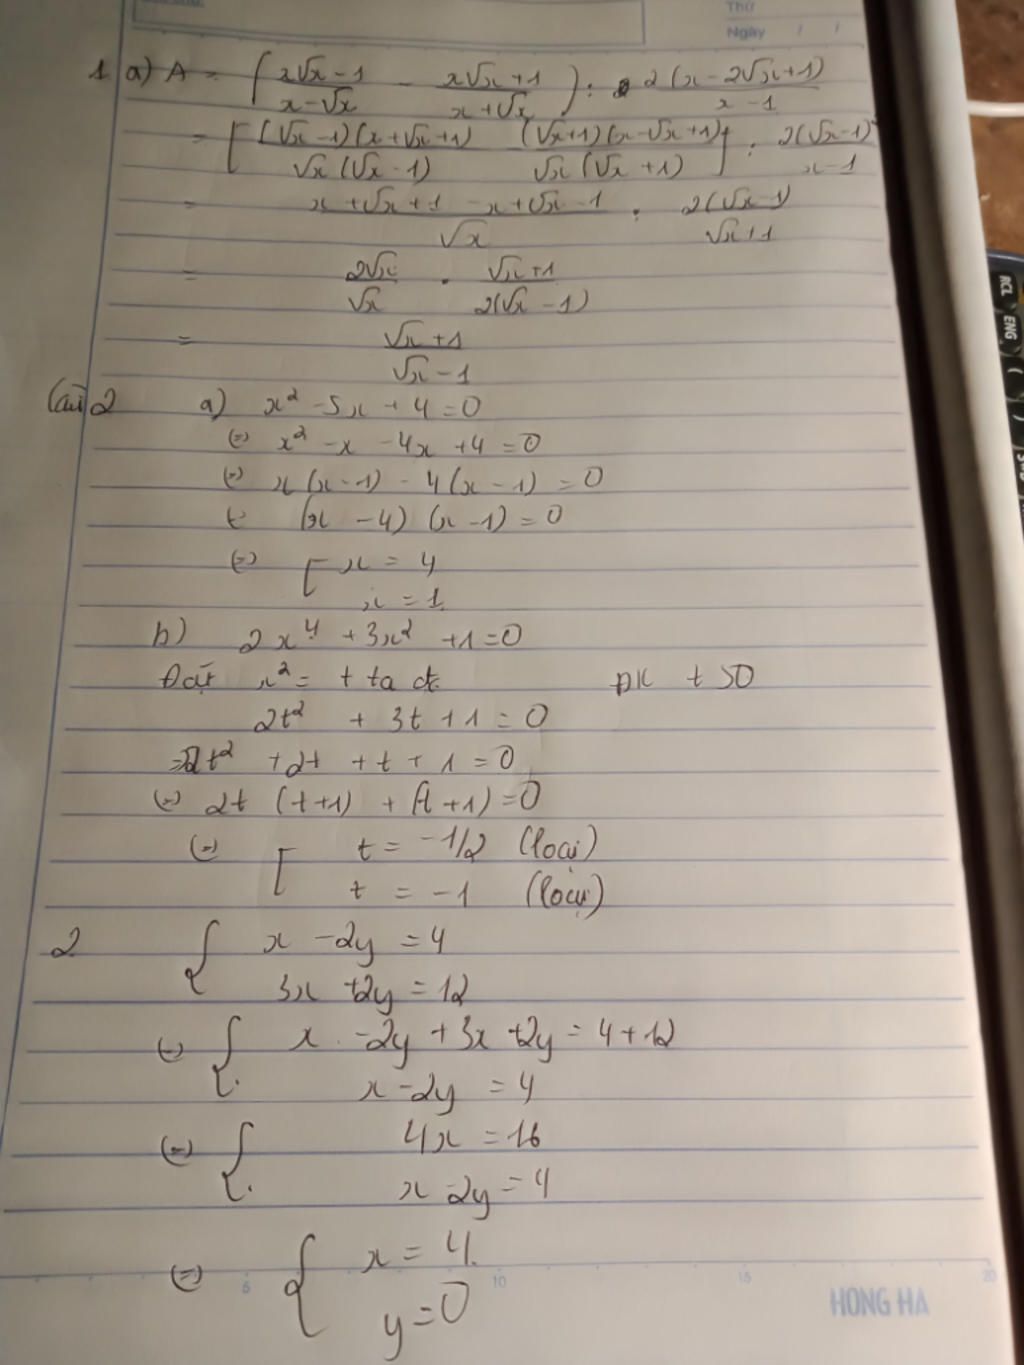 Thứ
Ngày / /
1. a) A = (x√x - 1 / x - √x - x√x + 1 / x + √x) : 2(x - 2√x + 1) / x - 1
= [(√x - 1)(x + √x + 1) / √x(√x - 1) (√x + 1)(x - √x + 1) / √x(√x + 1)] : 2(√x - 1)² / x - 1
= x + √x + 1 - x + √x - 1 / √x : 2(√x - 1) / √x + 1
= 2√x / √x . √x + 1 / 2(√x - 1)
= √x + 1 / √x - 1
Câu 2 a) x² - 5x + 4 = 0
(=) x² - x - 4x + 4 = 0
(=) x(x - 1) - 4(x - 1) = 0
(x - 4)(x - 1) = 0
(=) [ x = 4
x = 1
b) 2x⁴ + 3x² + 1 = 0
Đặt x² = t ta đc ĐK t > 0
2t² + 3t + 1 = 0
=2t² + 2t + t + 1 = 0
(=) 2t (t + 1) + (t + 1) = 0
(=) [ t = -1/2 (loại)
t = -1 (loại)
2. { x - 2y = 4
3x + 2y = 12
(=) { x - 2y + 3x + 2y = 4 + 12
x - 2y = 4
(=) { 4x = 16
x - 2y = 4
(=) { x = 4
y = 0
5 10 15 20
HONG HA
RCL
ENG
(
)